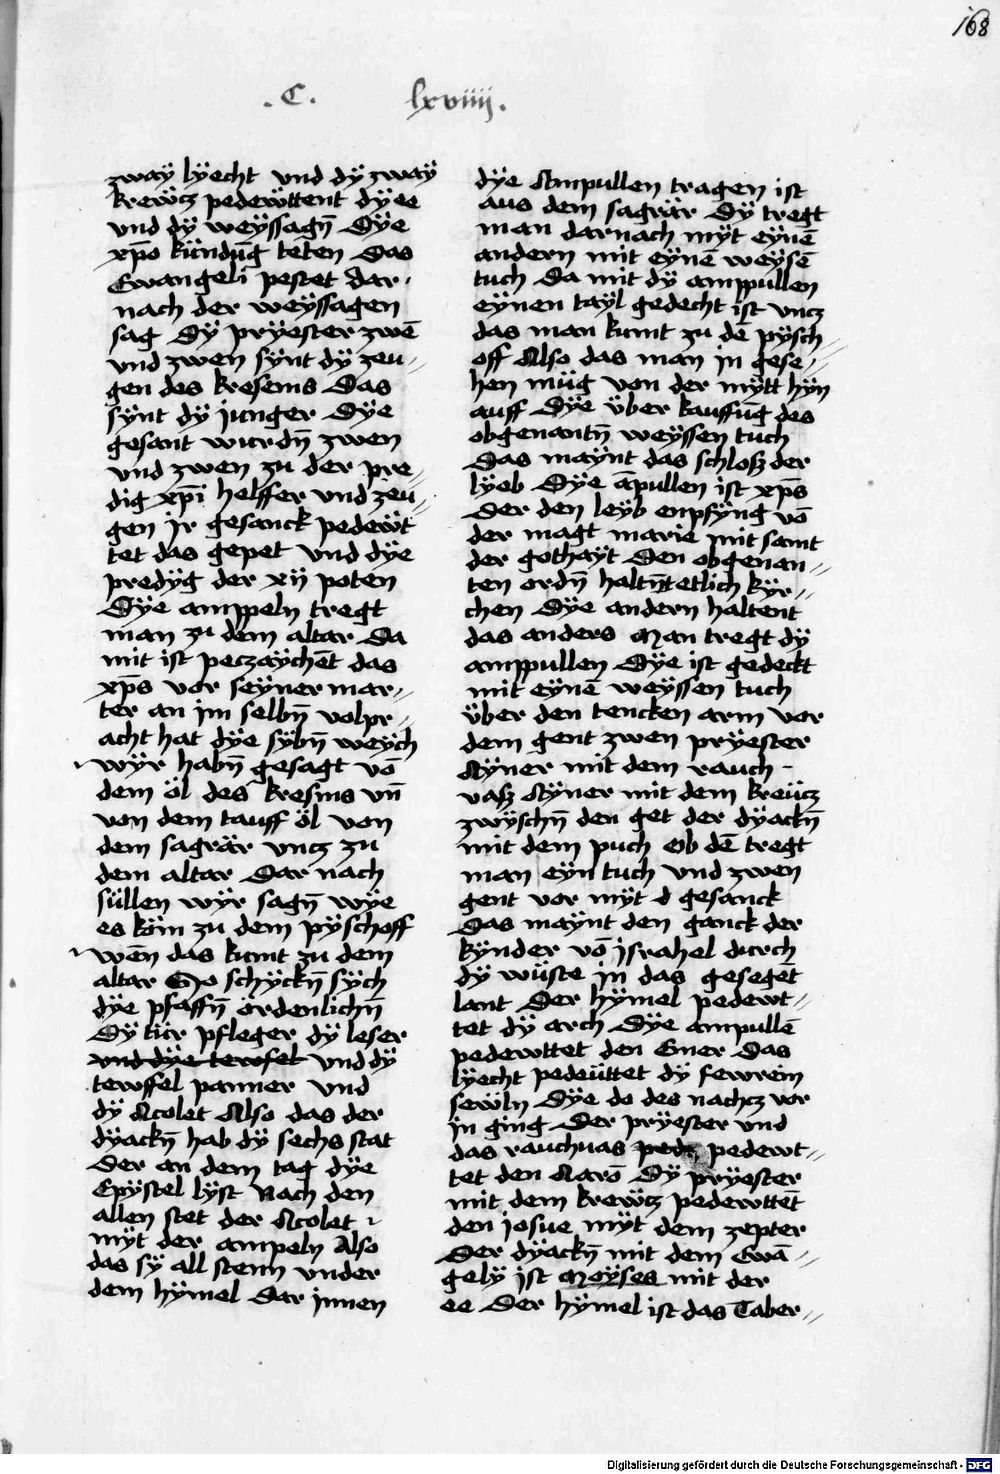 168
.C. lxviiij.
zwaÿ lÿecht vnd dÿ zwaÿ
krewcz pedewttent dÿ ee
vnd dÿ weÿssagn̄ Dÿe
xp̄o kündūg teten Das
Ewangeli pestet dar
nach der weÿssagen
sag Dÿ prÿester zwē
vnd zwen sÿnt dÿ zeu⸗
gen des kresems Das
sÿnt dÿ junger Dÿe
gesant wurdn̄ zwen
vnd zwen zu der pre⸗
dig xp̄i helffer vnd zeu⸗
gen jr gesanck pedewt
tet das gepet vnd dÿe
predÿg der xij poten
Dÿe amppeln tregt
man zu dem altar Da
mit ist peczaÿchēt das
xp̄s vor seÿner mar⸗
ter an jm selbn̄ volpr⸗
acht hat dÿe sÿbn̄ weÿch
wÿr habn̄ gesagt vō
dem öl des kresms vn̄
von dem tauff öl von
dem sagrär vncz zu
dem altar Dar nach
süllen wÿr sagn̄ wÿe
es köm zu dem pÿschoff
wēn das kumt zu dem
altar So schÿckn̄ sÿch
dÿe pfaffn̄ ördenlichn̄
Dÿ tür pfleger dÿ leser
vnd dÿe tewfel vnd dÿ
tewffel panner vnd
dÿ Acolet Also das der
dÿackn̄ hab dÿ sechs stat
Der an dem tag dÿe
Epÿstel lÿst Nach den
allen stet der Acolet
mÿt der ampeln Also
das sÿ all stenn vnder
dem hÿmel Dar jnnen
dÿe Ampullen tragen ist
aus dem sagrär Dÿ tregt
man darnach mÿt eÿnē
andern mit eÿnē weÿsē
tuch Da mit dÿ amppullen
eÿnen taÿl gedecht ist vncz
das man kumt zu dē pÿsch⸗
off Also das man jn gese⸗
hen müg von der mÿtt hÿn
auff Dÿe über kauffūg des
obgenantn̄ weÿssen tuch
Das maÿnt das schlosz der
lÿeb Dÿe āpullen ist xp̄s
Der den leÿb enpfÿng vō
der magt marie mit samt
der gothaÿt Den obgenan⸗
ten ordn̄ haltn̄t etlich kÿr⸗
chen Dÿe andern haltent
das anders Man tregt dÿ
amppullen Dÿe ist gedeckt
mit eÿnē weÿssen tuch
über den tencken arm vor
dem gent zwen prÿester
Aÿner mit dem rauch
vasz Aÿner mit dem kreücz
zwÿschn̄ den get der dÿackn̄
mit dem puch Ob dē tregt
man eÿn tuch vnd zwen
gent vor mÿt d gesanck
Das maÿnt den ganck der
kÿnder vō jsrahel durch
dÿ wüste jn das gesegēt
lant Der hÿmel pedewt⸗
tet dÿ arch Dÿe ampullē
pedewttet den Emer Das
lÿecht pedeüttet dÿ fewrein
sewln Dÿe do des nachcz vor
jn ging Der prÿester vnd
das rauchuas pedewt⸗
tet den Aarō Dÿ prÿester
mit dem krewcz pedewttēt
den josue mÿt dem zepter
Der dÿackn̄ mit dem Ewā⸗
gelÿ jst Moÿses mit der
ee Der hÿmel ist das Taber⸗
Digitalisierung gefördert durch die Deutsche Forschungsgemeinschaft - DFG